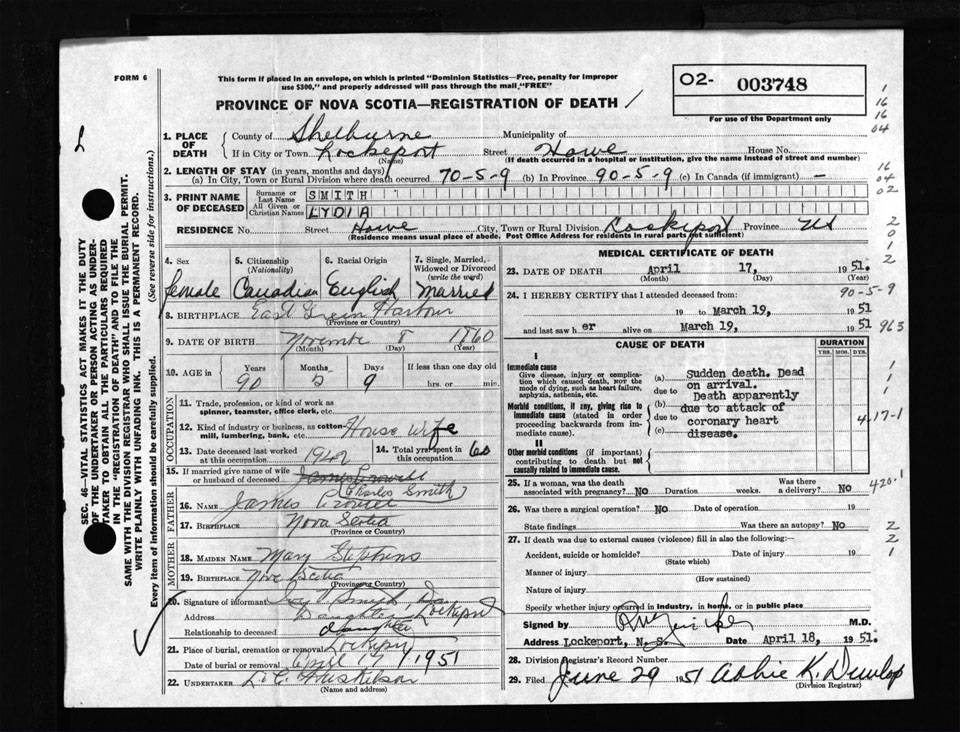 FORM 6
This form if placed in an envelope, on which is printed "Dominion Statistics—Free, penalty for improper
use $300," and properly addressed will pass through the mail "FREE"
O2- 003748
For use of the Department only
PROVINCE OF NOVA SCOTIA—REGISTRATION OF DEATH
1
16
16
04
16
04
02
2
0
1
2
SEC. 46—VITAL STATISTICS ACT MAKES IT THE DUTY
OF THE UNDERTAKER OR PERSON ACTING AS UNDER-
TAKER TO OBTAIN ALL THE PARTICULARS REQUIRED
IN THE "REGISTRATION OF DEATH" AND TO FILE THE
SAME WITH THE DIVISION REGISTRAR WHO SHALL ISSUE THE BURIAL PERMIT.
WRITE PLAINLY WITH UNFADING INK. THIS IS A PERMANENT RECORD.
Every item of information should be carefully supplied. (See reverse side for instructions.)
1. PLACE OF DEATH
County of Shelburne Municipality of
If in City or Town Lockeport Street Howe House No.
(Name) (If death occurred in a hospital or institution, give the name instead of street and number)
2. LENGTH OF STAY (in years, months and days)
(a) In City, Town or Rural Division where death occurred 70-5-9 (b) In Province 90-5-9 (c) In Canada (if immigrant) —
3. PRINT NAME OF DECEASED
Surname or Last Name SMITH
All Given or Christian Names LYDIA
RESIDENCE No. Street Howe City, Town or Rural Division Lockeport Province NS
(Residence means usual place of abode. Post Office Address for residents in rural parts not sufficient)
4. Sex
female
5. Citizenship
(Nationality)
Canadian
6. Racial Origin
English
7. Single, Married, Widowed or Divorced
(write the word)
Married
8. BIRTHPLACE East Green Harbour
(Province or Country)
9. DATE OF BIRTH November 8 1860
(Month) (Day) (Year)
10. AGE in Years Months Days If less than one day old
90 5 9 hrs. or min.
OCCUPATION
11. Trade, profession, or kind of work as
spinner, teamster, office clerk, etc.
12. Kind of industry or business, as cotton
mill, lumbering, bank, etc. House Wife
13. Date deceased last worked
at this occupation 1942
14. Total yrs. spent in
this occupation 60
15. If married give name of wife
or husband of deceased
(Charles Smith)
FATHER
16. Name James
17. BIRTHPLACE Nova Scotia
MOTHER
18. MAIDEN NAME Mary Stephens
19. BIRTHPLACE Nova Scotia
(Province or Country)
20. Signature of informant Smith
Address Lockeport
Relationship to deceased daughter
21. Place of burial, cremation or removal Lockeport
Date of burial or removal April 19 1951
22. UNDERTAKER
(Name and address)
MEDICAL CERTIFICATE OF DEATH
23. DATE OF DEATH April 17, 1951.
(Month) (Day) (Year)
24. I HEREBY CERTIFY that I attended deceased from: 90-5-9
19 to March 19, 1951
and last saw her alive on March 19, 1951 963
CAUSE OF DEATH
DURATION
YRS. MOS. DYS.
I
Immediate cause
Give disease, injury or complica-
tion which caused death, NOT the
mode of dying, such as heart failure,
asphyxia, asthenia, etc.
(a) Sudden death. Dead
on arrival.
due to
Death apparently
Morbid conditions, if any, giving rise to
immediate cause (stated in order
proceeding backwards from im-
mediate cause).
(b) due to attack of
due to
coronary heart
(c) disease.
1
1
1
4 17-1
II
Other morbid conditions (if important)
contributing to death but not
causally related to immediate cause.
25. If a woman, was the death
associated with pregnancy? No Duration weeks. Was there
a delivery? No
420-1
26. Was there a surgical operation? No Date of operation 19
State findings Was there an autopsy? No
2
2
1
27. If death was due to external causes (violence) fill in also the following:—
Accident, suicide or homicide? Date of injury 19
(State which)
Manner of injury
(How sustained)
Nature of injury
Specify whether injury occurred in industry, in home, or in public place
Signed by M.D.
Address Lockeport, N. S. Date April 18, 1951.
28. Division Registrar's Record Number
29. Filed June 29 1951 Abbie K. Dunlop
(Division Registrar)